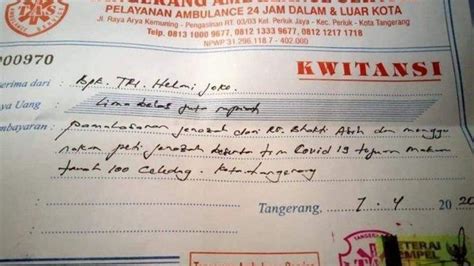 TANGERANG AMBULANCE SERVICE
PELAYANAN AMBULANCE 24 JAM DALAM & LUAR KOTA
Jl. Raya Arya Kemuning - Pengasinan RT. 03/03 Kel. Periuk Jaya - Kec. Periuk - Kota Tangerang
Telp. 0813 1000 9677, 0812 1333 9677, 0812 1217 1718
NPWP 31.296.118.7 - 402.000
00970
KWITANSI
erima dari : Bpk. TRI. Helmi Joko.
ya Uang : Lima belas juta rupiah
mbayaran : pemakasaran jenazah dari RS. Bhakti Asih dan menggu
nakan peti jenazah beserta tim Covid 19 tujuan makam
tanah 100 Celedug. Kota tangerang
Tangerang, 7 - 4 20 20
TANGER
METERAI
TEMPEL